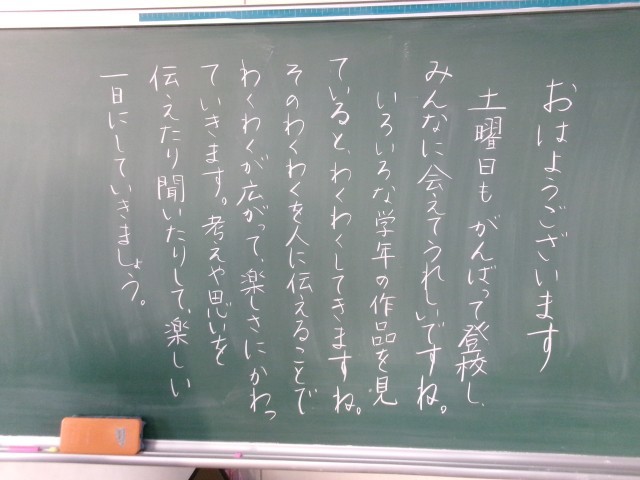 おはようございます
土曜日もがんばって登校し、
みんなに会えてうれしいですね。
いろいろな学年の作品を見
ていると、わくわくしてきますね。
そのわくわくを人に伝えることで
わくわくが広がって、楽しさにかわっ
ていきます。考えや思いを
伝えたり聞いたりして、楽しい
一日にしていきましょう。